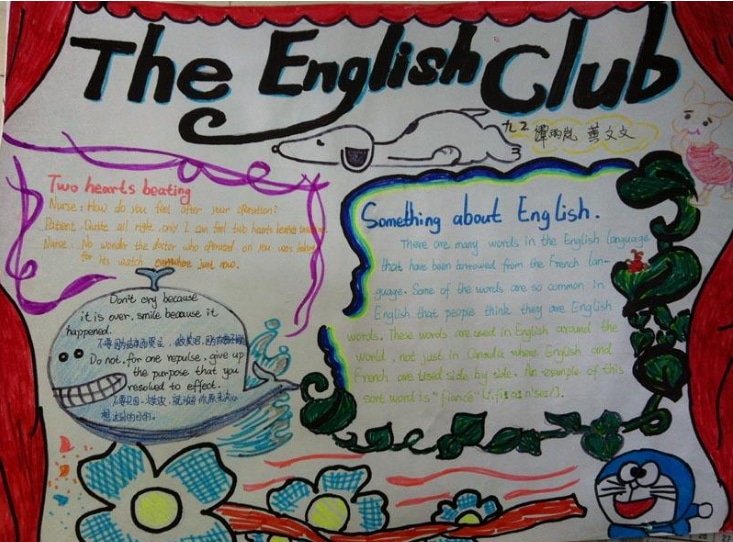 The English Club
九2 谭雨岚 黄文文
Two hearts beating
Nurse: How do you feel after your operation?
Patient: Quite all right, only I can feel two hearts beating
Nurse: No wonder the doctor who operated on you was looking
for his watch everywhere just now.
Don't cry because
it is over, smile because it
happened.
Do not, for one repulse, give up
the purpose that you
resolved to effect.
Something about English.
There are many words in the English language
that have been borrowed from the French lan-
guage. Some of the words are so common in
English that people think they are English
words. These words are used in English around the
world, not just in Canada where English and
French are used side by side. An example of this
sort word is "fiance"